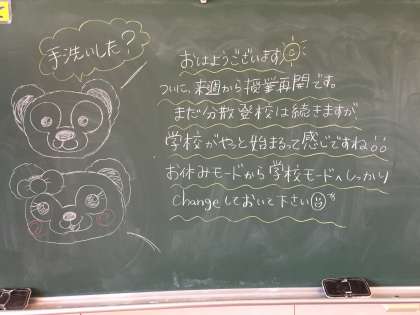 手洗いした?
おはようございます
ついに、来週から授業再開です。
まだ分散登校は続きますが
学校がやっと始まるって感じですね
お休みモードから学校モードへしっかり
changeしておいて下さい